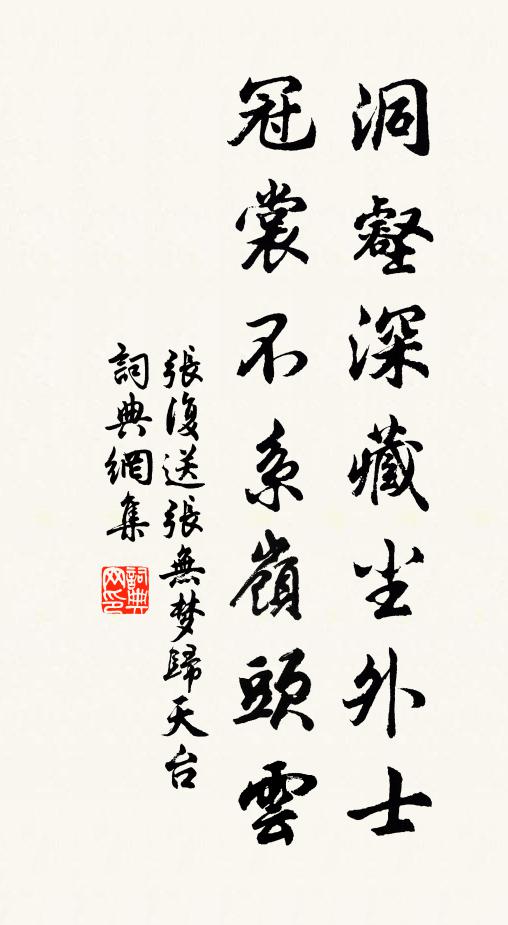 洞壑深藏尘外士
冠裳不系嶺頭雲
張復送張無梦歸天台
詞典網集
詞典网印